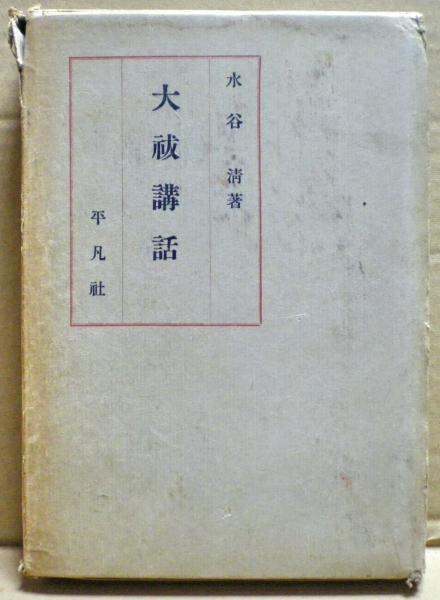 水谷清著
大祓講話
平凡社